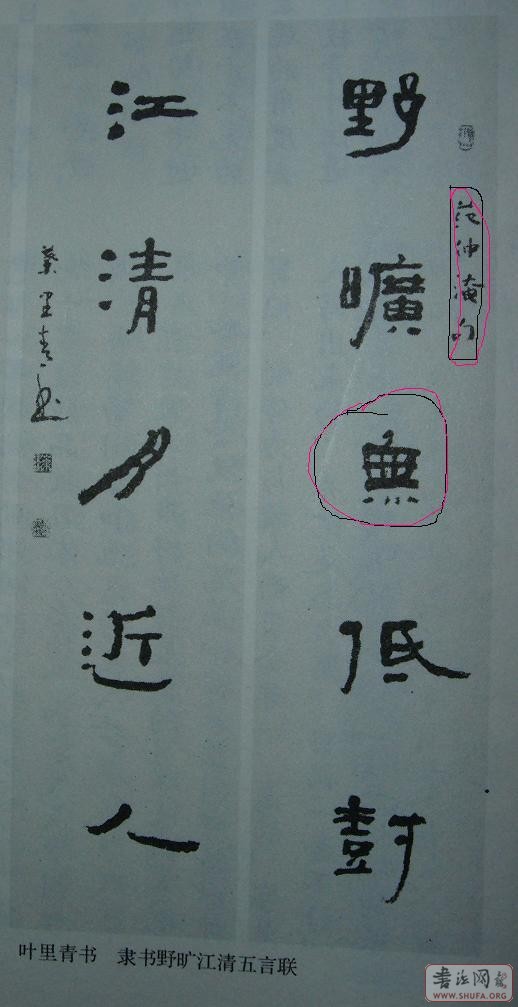 范仲淹句
野曠無低尌
江清月近人
葉里青書
叶里青书 隶书野旷江清五言联
書法网
WWW.SHUFA.ORG